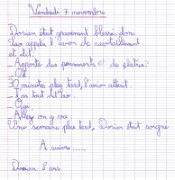 Vendredi 7 novembre
Dorian était gravement blessé donc
Léo appela l'avion de
et dit :
- Apporte des pansements et du plâtre !
- OK
30 minutes plus tard, l'avion atterrit
- Oui
- Allez on y va
Une semaine plus tard, Dorian était soigné
À suivre.......
Dorian